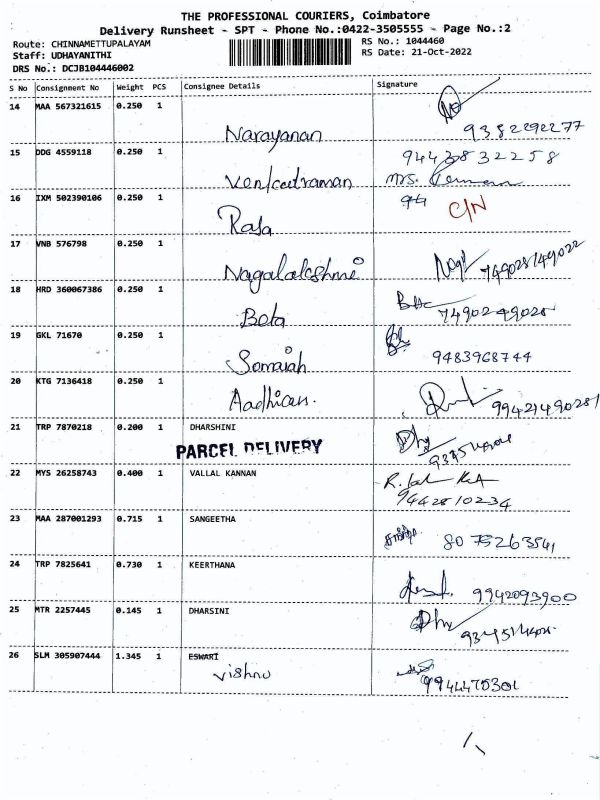 THE PROFESSIONAL COURIERS, Coimbatore
Delivery Runsheet - SPT - Phone No.:0422-3505555 - Page No.:2
Route: CHINNAMETTUPALAYAM RS No.: 1044460
Staff: UDHAYANITHI RS Date: 21-Oct-2022
DRS No.: DCJB104446002
S No Consignment No Weight PCS Consignee Details Signature
14 MAA 567321615 0.250 1
Narayanan 9382292277
15 DDG 4559118 0.250 1 9443832258
Venkatraman Mrs.
16 IXM 502390106 0.250 1 C/N
Raja
17 VNB 576798 0.250 1
Nagalakshmi
18 HRD 360067386 0.250 1
Beta 7490249028
19 GKL 71670 0.250 1
Somaiah 9483968744
20 KTG 7136418 0.250 1
Aadhican.
21 TRP 7870218 0.200 1 DHARSHINI
PARCEL DELIVERY
22 MYS 26258743 0.400 1 VALLAL KANNAN
9442810234
23 MAA 287001293 0.715 1 SANGEETHA
8075263541
24 TRP 7825641 0.730 1 KEERTHANA
9942093900
25 MTR 2257445 0.145 1 DHARSINI
26 SLM 305907444 1.345 1 ESWARI
Vishnu 9944475301